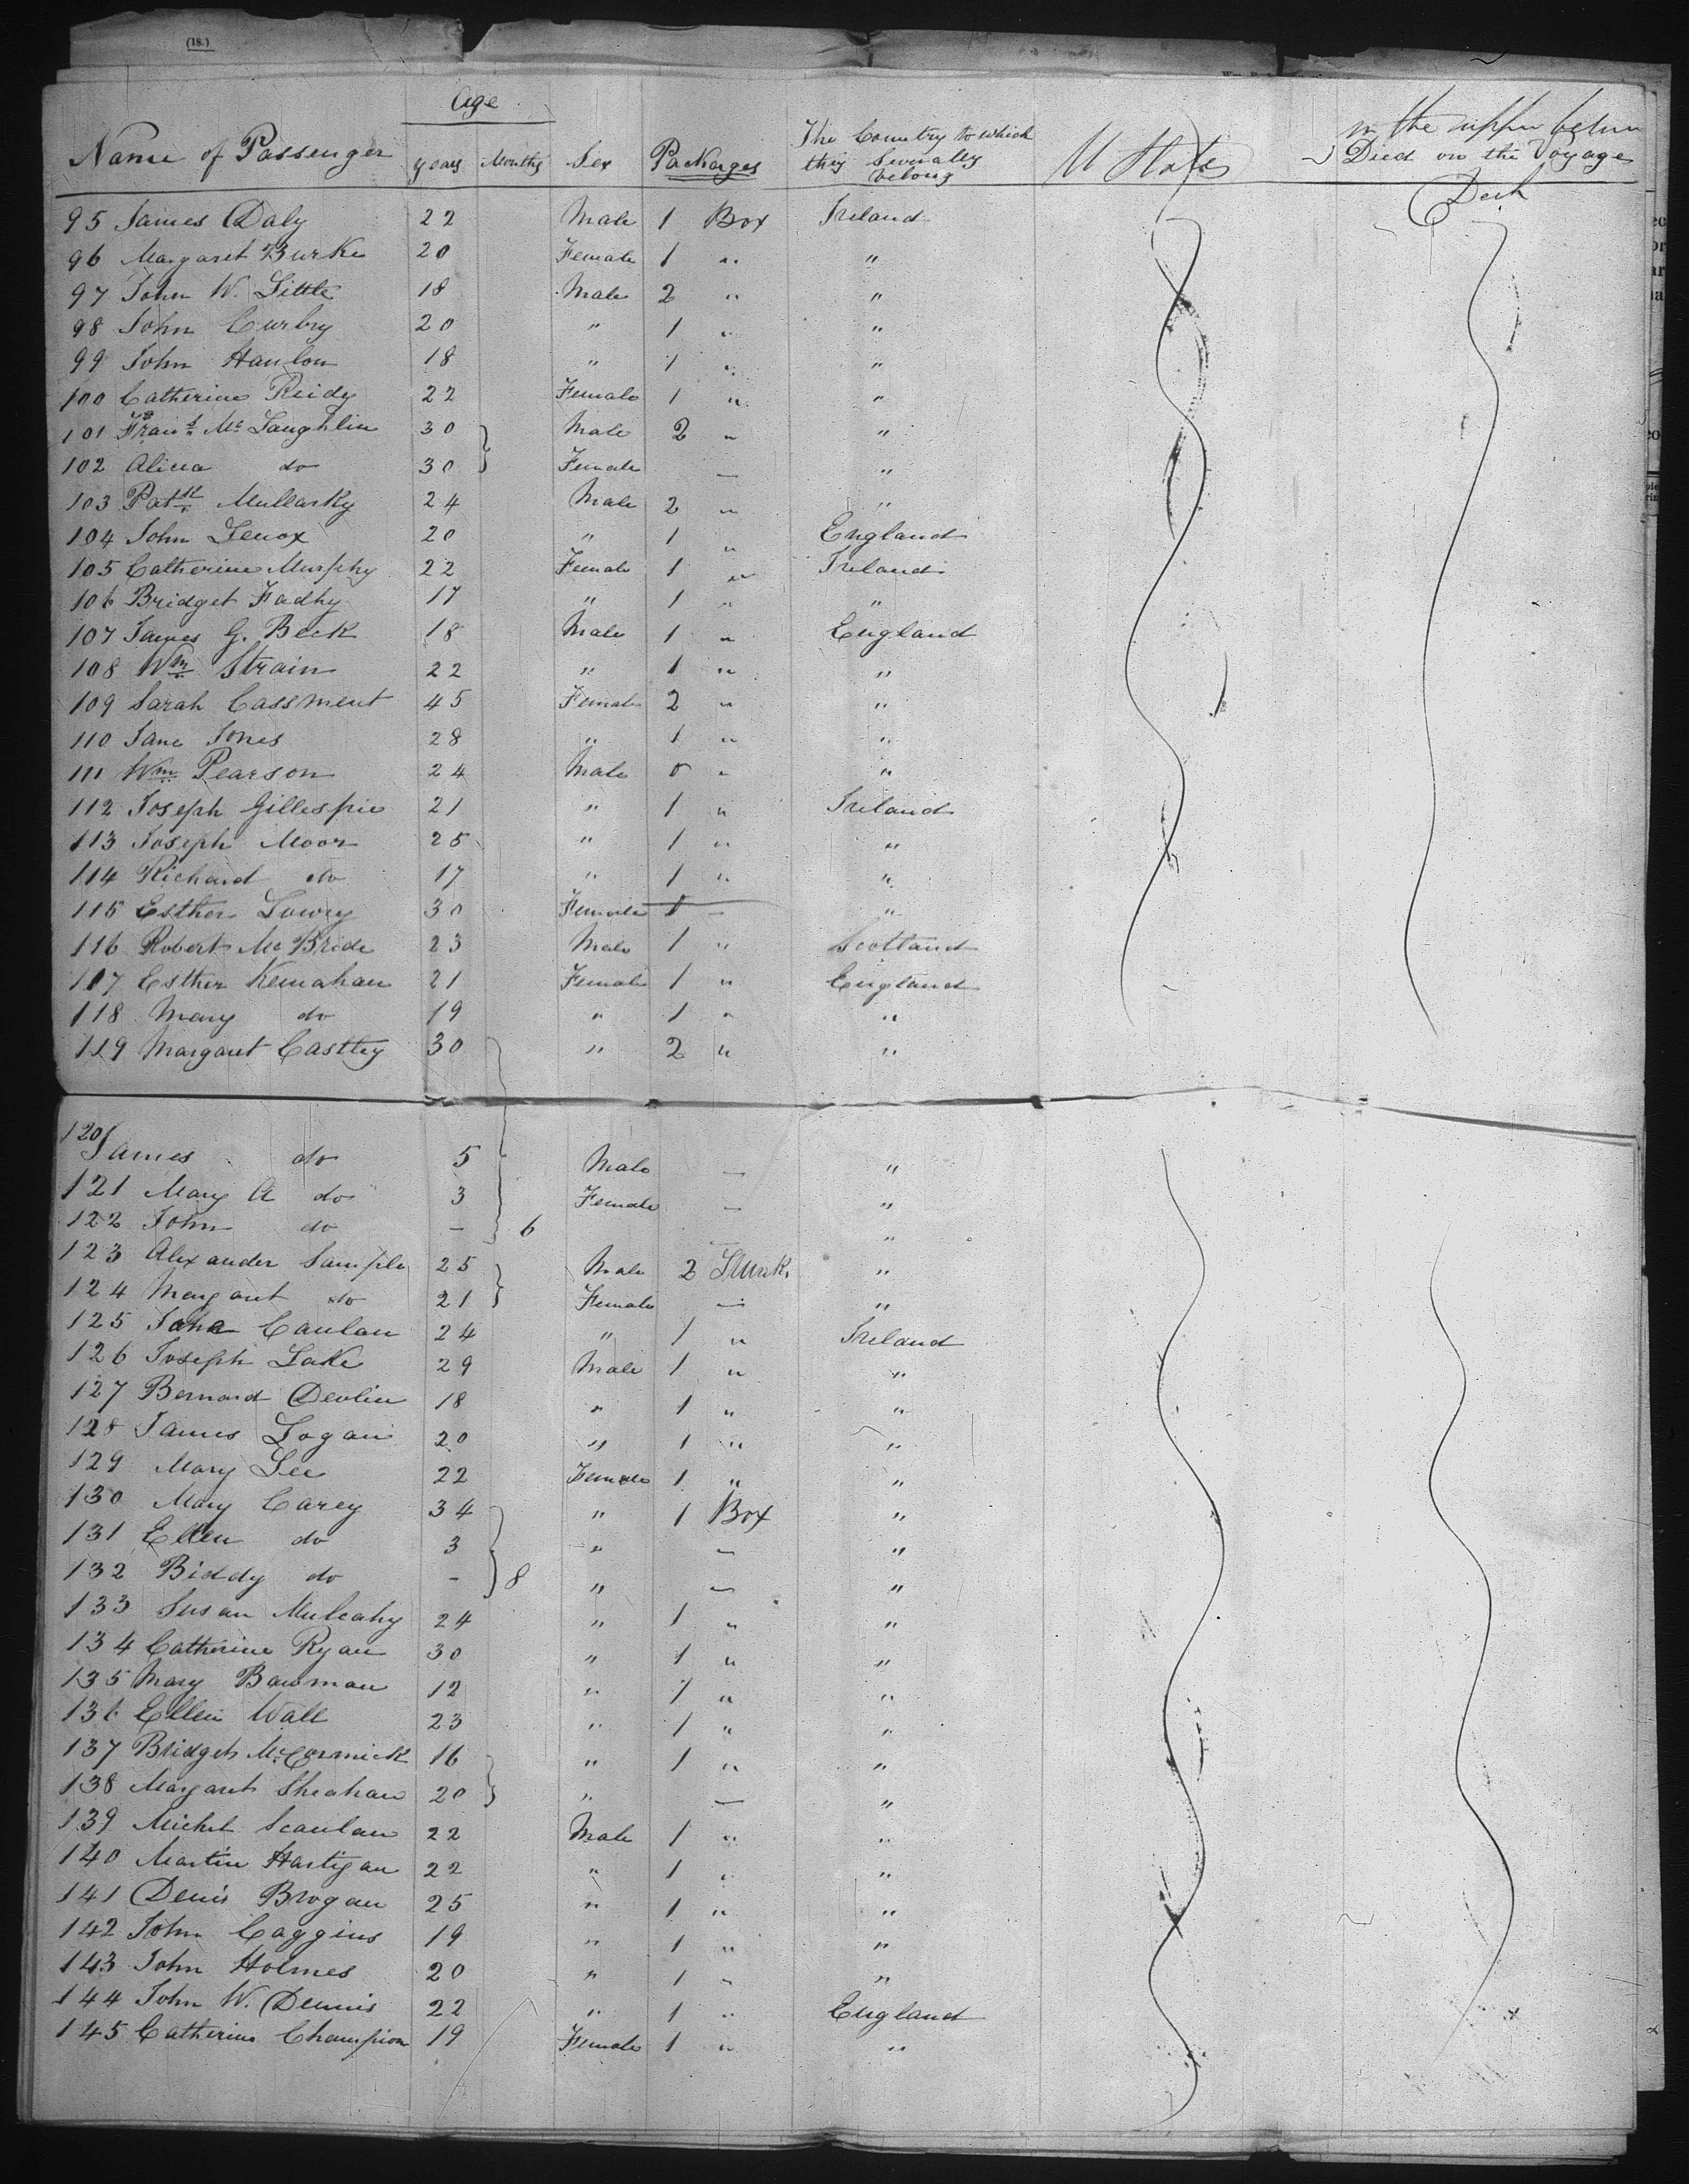 (18.)
Age
Name of Passenger years Months Sex Packages The Country to which they Severally belong U States in the upper betwn Deck Died on the Voyage
95 James Daly 22 Male 1 Box Ireland
96 Margaret Burke 20 Female 1 " "
97 John W. Little 18 Male 2 " "
98 John Curby 20 " 1 " "
99 John Hanlon 18 " 1 " "
100 Catherine Reidy 22 Female 1 " "
101 Frans Mc Laughlin 30 Male 2 " "
102 Alicia do 30 Female — "
103 Patk Mullarky 24 Male 2 " "
104 John Lenox 20 " 1 " England
105 Catherine Murphy 22 Female 1 " Ireland
106 Bridget Fadhy 17 " 1 " "
107 James G. Beck 18 Male 1 " England
108 Wm Strain 22 " 1 " "
109 Sarah Cassment 45 Female 2 " "
110 Jane Jones 28 " 1 " "
111 Wm Pearson 24 Male 0 " "
112 Joseph Gillespie 21 " 1 " Ireland
113 Joseph Moor 25 " 1 " "
114 Richard do 17 " 1 " "
115 Esther Lowry 30 Female 1 — "
116 Robert Mc Bride 23 Male 1 " Scotland
117 Esther Kernahan 21 Female 1 " England
118 Mary do 19 " 1 " "
119 Margaret Casttey 30 " 2 " "
120 James do 5 Male — "
121 Mary A do 3 Female — "
122 John do — 6 — "
123 Alexander Sample 25 Male 2 Trunk "
124 Margaret do 21 Female — "
125 Jane Canlan 24 " 1 " Ireland
126 Joseph Lake 29 Male 1 " "
127 Bernard Devlin 18 " 1 " "
128 James Logan 20 " 1 " "
129 Mary Lee 22 Female 1 " "
130 Mary Carey 34 " 1 Box "
131 Ellen do 3 " — "
132 Biddy do - 8 " — "
133 Susan Mulcahy 24 " 1 " "
134 Catherine Ryan 30 " 1 " "
135 Mary Bawman 12 " 1 " "
136 Ellen Wall 23 " 1 " "
137 Bridget McCormick 16 " 1 " "
138 Margaret Sheahan 20 " — "
139 Michel Scanlan 22 Male 1 " "
140 Martin Hartigan 22 " 1 " "
141 Denis Brogan 25 " 1 " "
142 John Caggins 19 " 1 " "
143 John Holmes 20 " 1 " "
144 John W. Dennis 22 " 1 " England
145 Catherine Champion 19 Female 1 " "